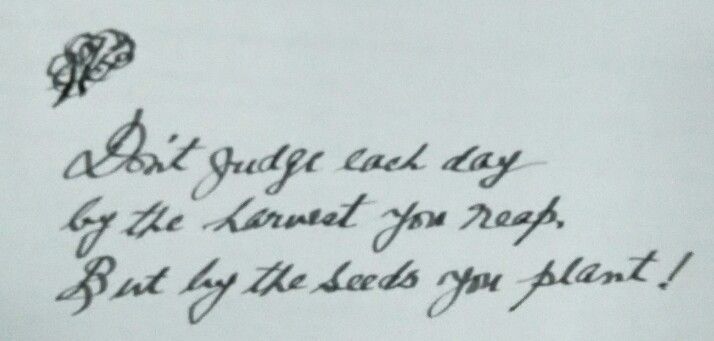 Don't judge each day
by the harvest you reap.
But by the seeds you plant!